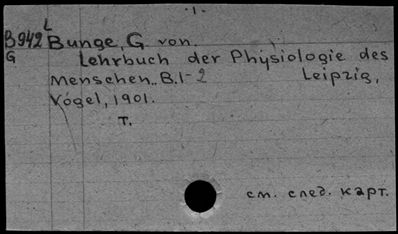 1.
L
B942 Bunge, G. von.
G Lehrbuch der Physiologie des
Menschen. B.1-2 Leipzig,
Vogel, 1901.
т.
см. след. карт.